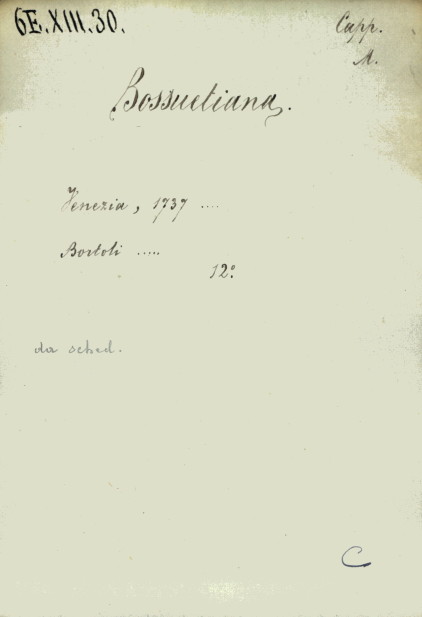 6E.XIII.30.
Capp.
A.
Bossuetiana.
Venezia, 1737 ....
Bortoli .....
12º.
da sched.
C